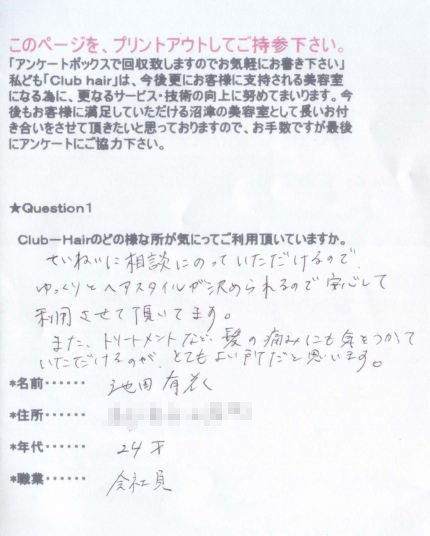 このページを、プリントアウトしてご持参下さい。
「アンケートボックスで回収致しますのでお気軽にお書き下さい」
私ども「Club hair」は、今後更にお客様に支持される美容室
になる為に、更なるサービス・技術の向上に努めてまいります。今
後もお客様に満足していただける沼津の美容室として長いお付
き合いをさせて頂きたいと思っておりますので、お手数ですが最後
にアンケートにご協力下さい。
★Question1
Club－Hairのどの様な所が気にってご利用頂いていますか。
ていねいに相談にのっていただけるので
ゆっくりとヘアスタイルが決められるので安心して
利用させて頂いてます。
また、トリートメントなど、髪の痛みにも気をつかって
いただけるのが、とてもよい所だと思います。
*名前・・・・・・ 池田 有
*住所・・・・・・
*年代・・・・・・ 24才
*職業・・・・・・ 会社員